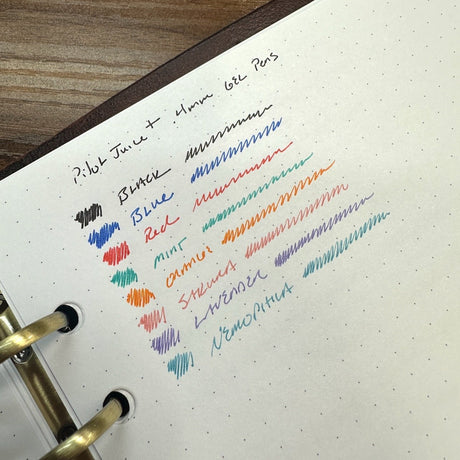 Pilot Juice + .4mm Gel Pens
BLACK
Blue
Red
MINT
ORANGE
SAKURA
LAVENDER
NEMOPHILA